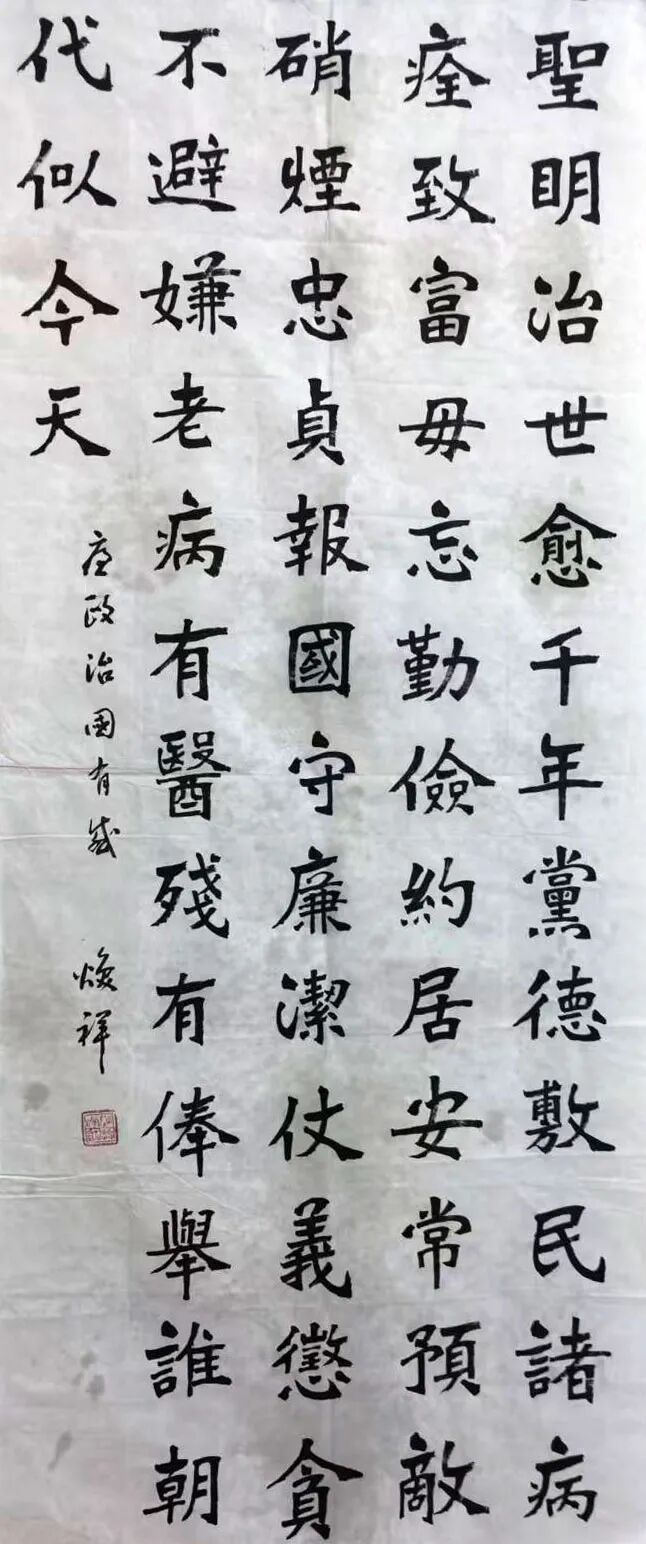 聖明治世愈千年黨德敷民諸病
痊致富毋忘勤儉約居安常預敵
硝煙忠貞報國守廉潔仗義懲貪
不避嫌老病有醫殘有俸舉誰朝
代似今天
政治國有感 煥祥